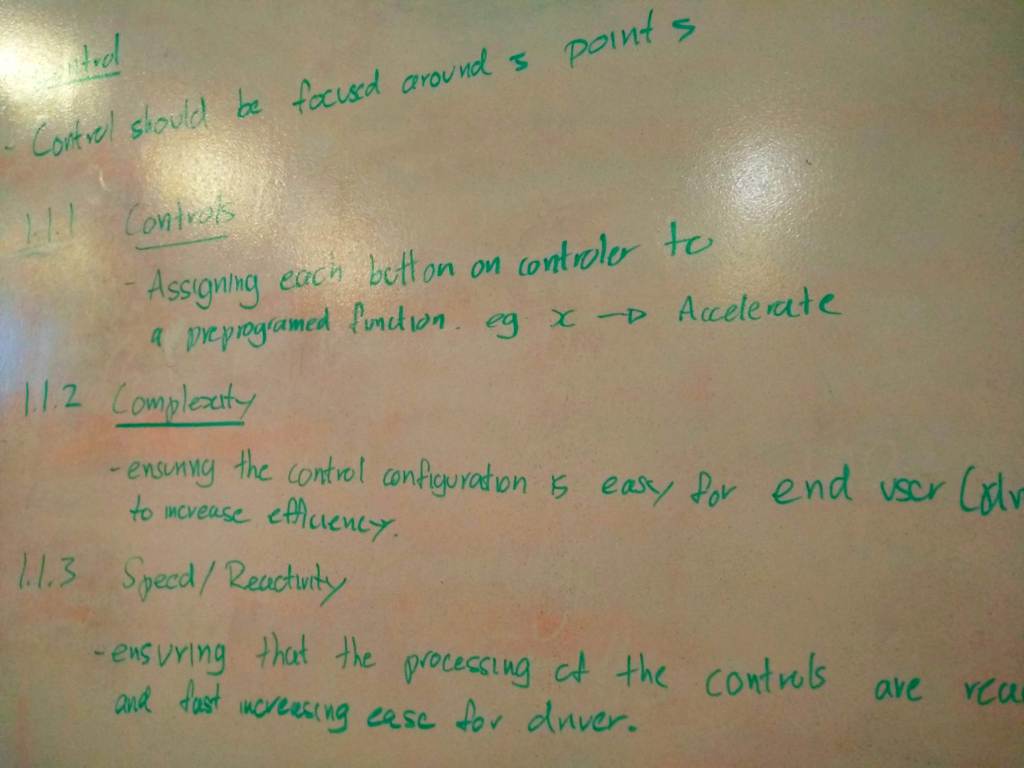 Control
- Control should be focused around 5 points
1.1.1 Controls
- Assigning each button on controler to
a preprogramed function. eg x → Accelerate
1.1.2 Complexity
- ensuring the control configuration is easy for end user
to increase efficiency.
1.1.3 Speed/Reactivity
- ensuring that the processing of the controls are
and fast increasing ease for driver.